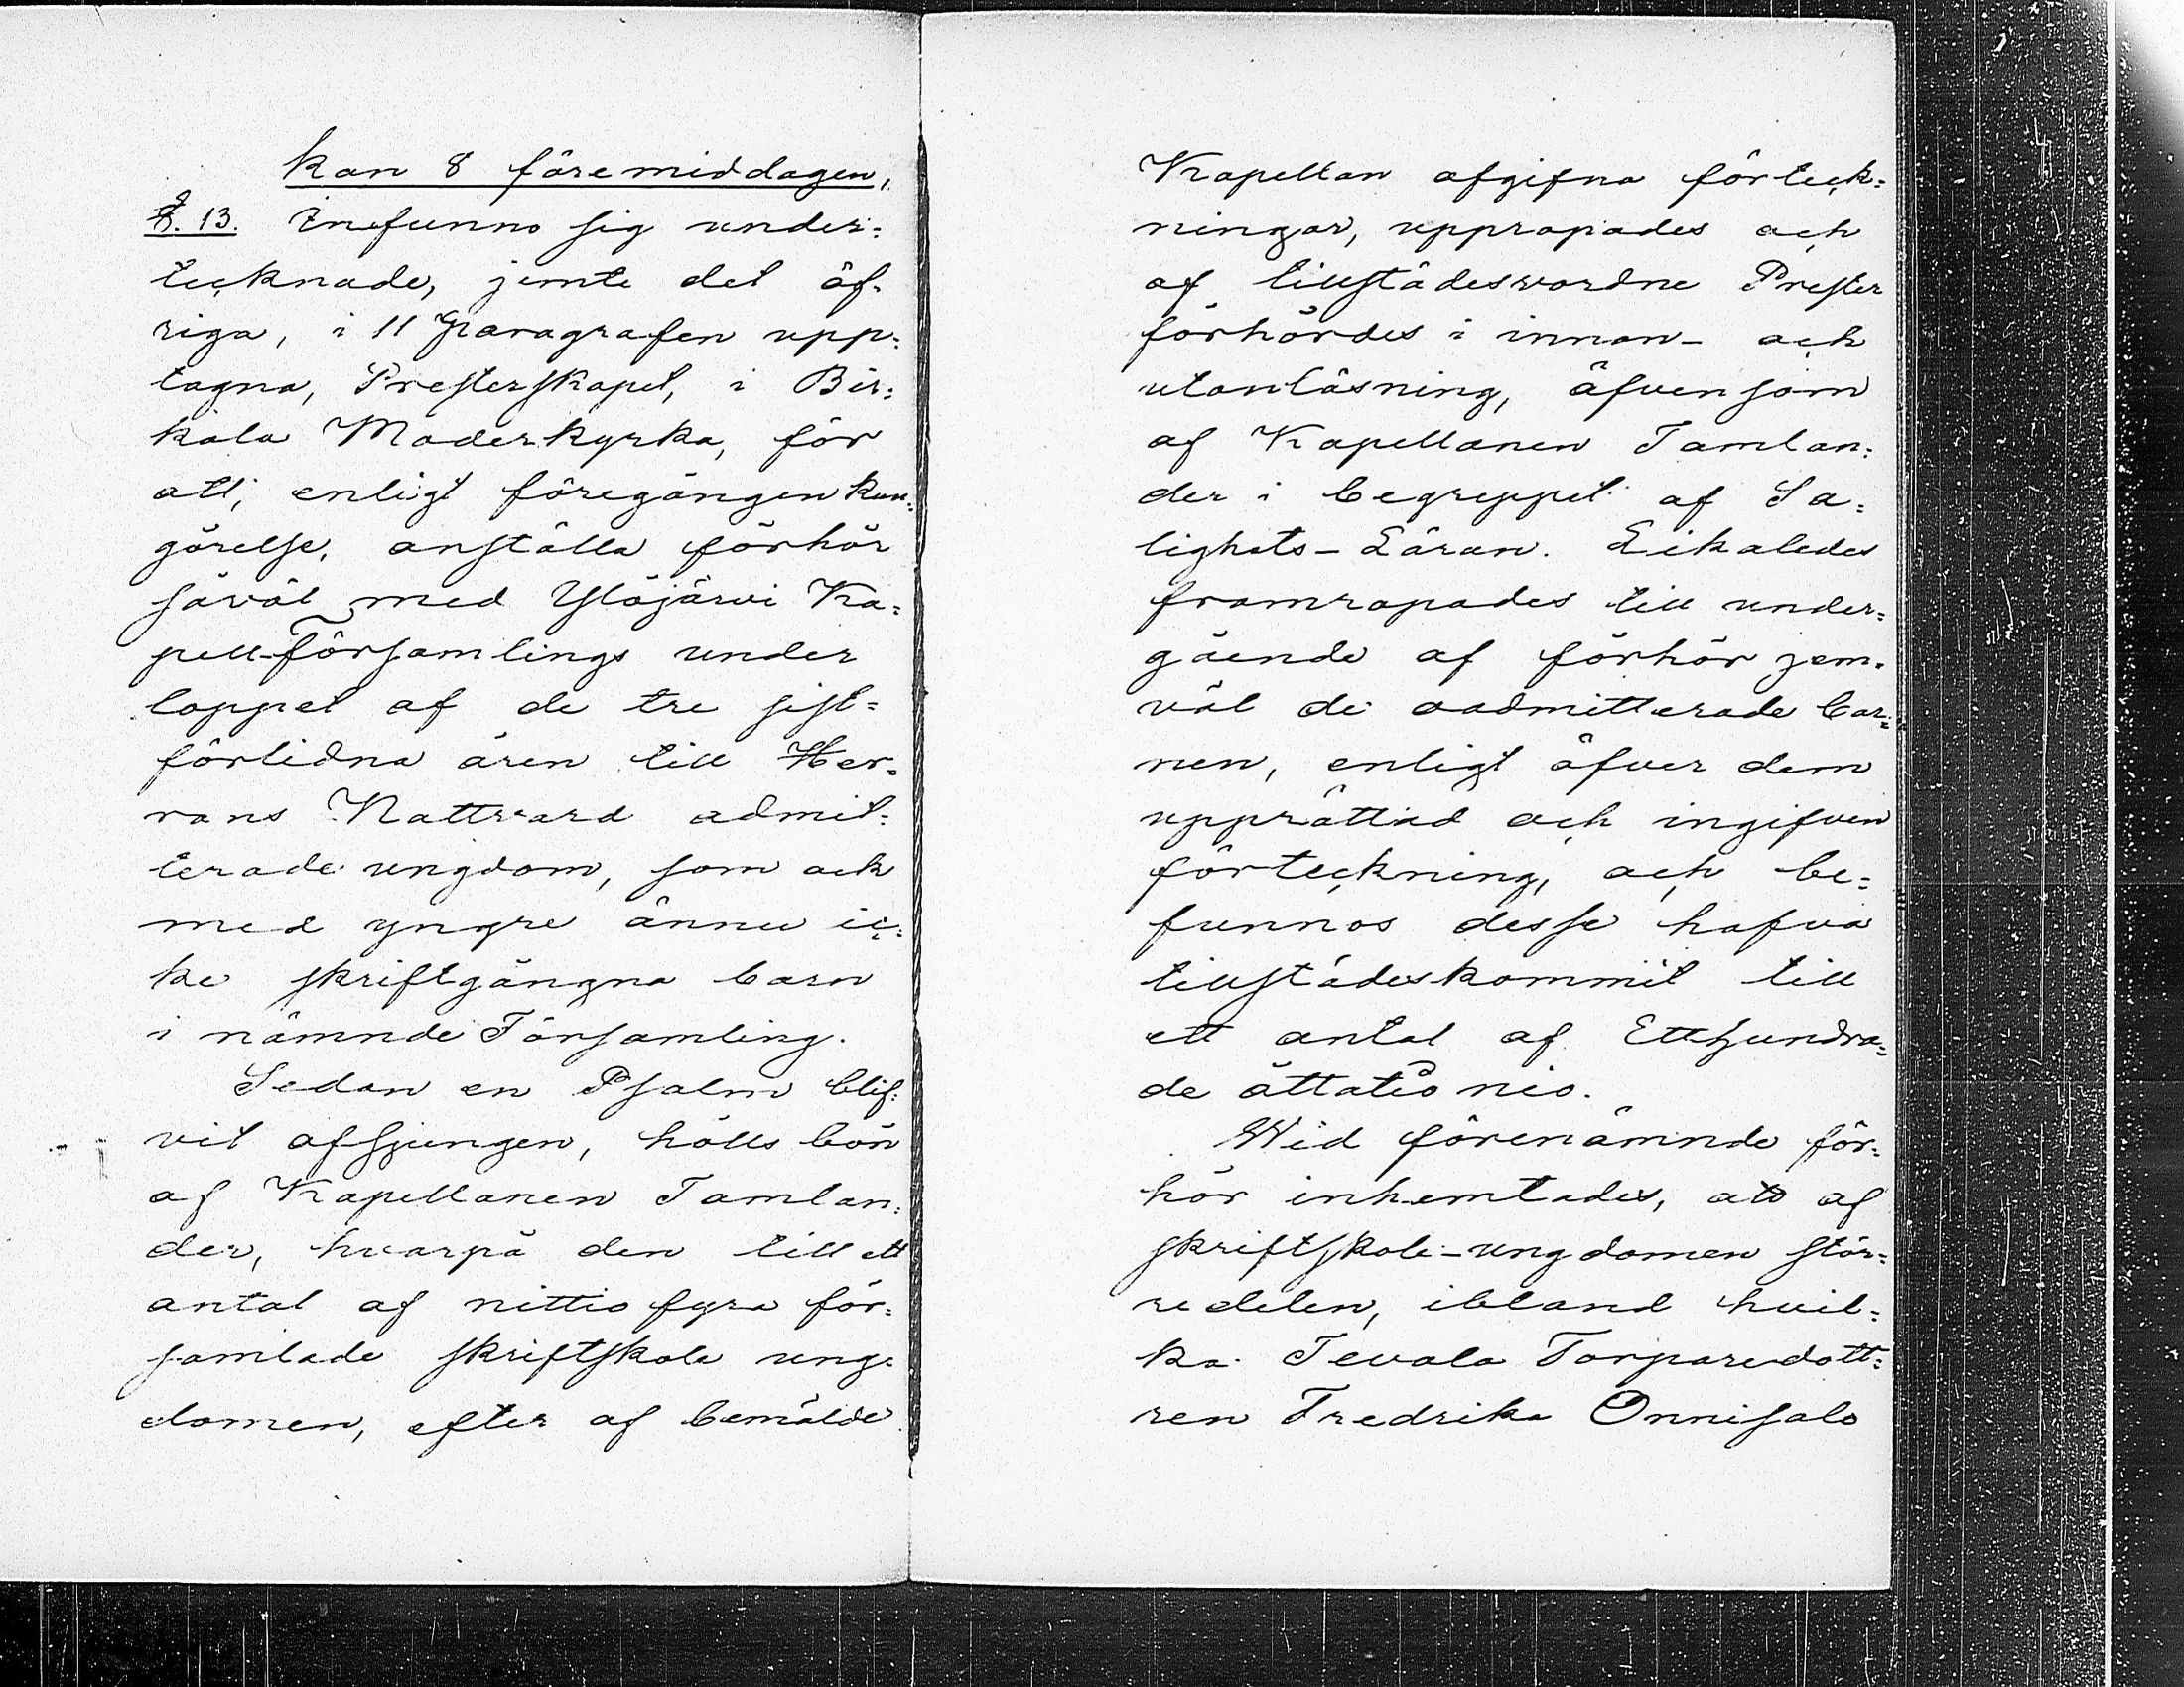 kan 8 föremiddagen,
§. 13. Infunno sig under=
tecknade, jemte det öf=
riga, i 11 Paragrafen upp=
tagna, Presterskapet, i Bir=
kala Moderkyrka, för
att, enligt föregången kun=
görelse, anställa förhör
såväl med Ylöjärvi Ka=
pell-Församlings under
loppet af de tre sist=
förlidna åren till Her=
rans Nattvard admit=
terade ungdom, som ock
med yngre ännu ic=
ke skriftgångna barn
i nämnde Församling.
Sedan en Psalm blif=
vit afsjungen, hölls bön
af Kapellanen Tamlan=
der, hvarpå den till ett
antal af nittio fyra för=
samlade skriftskole ung=
domen, efter af bemälde
Kapellan afgifna förteck=
ningar, uppropades och
af tillstädesvordne Prester
förhördes i innan- och
utanläsning, äfvensom
af Kapellanen Tamlan=
der i begreppet af Sa=
lighets-Läran. Likaledes
framropades till under=
gående af förhör jem=
väl de oadmitterade bar=
nen, enligt öfver dem
upprättad och ingifven
förteckning, och be=
funnos desse hafva
tillstädeskommit till
ett antal af Etthundra=
de åttatio nio.
Wid förenämnde för=
hör inhemtades, att af
skriftskole-ungdomen stör=
re delen, ibland hvil=
ka Tevala Torparedott=
ren Fredrika Onnisalo